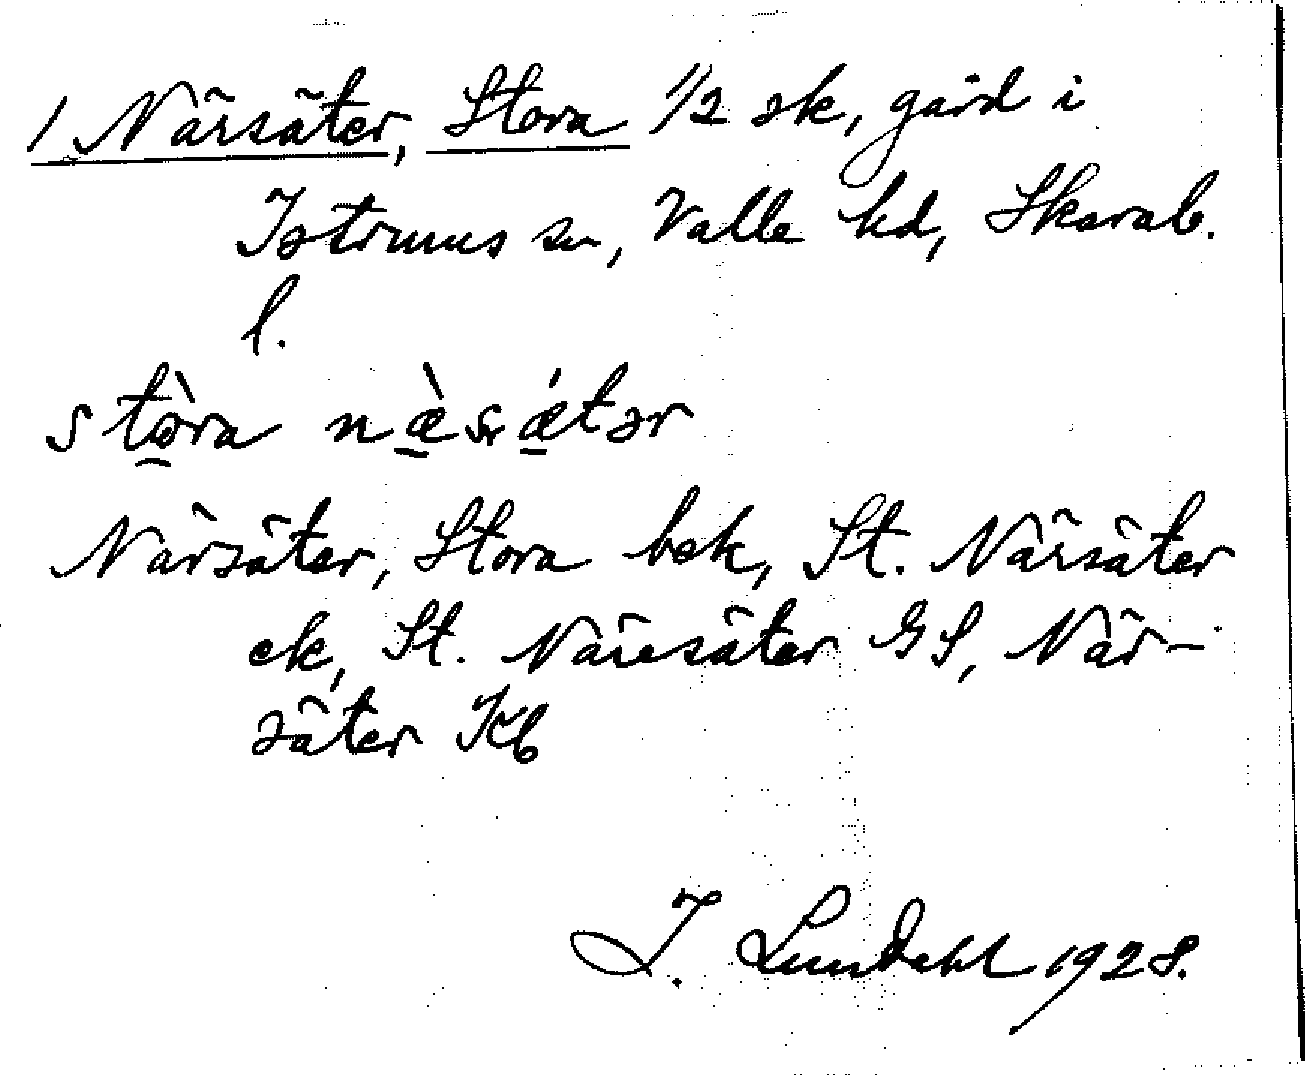 1 Närsäter, Stora 1/2 sk, gård i
Istrums sn, Valle hd, Skarab.
l.
stòra næ̀sǽtər
Närsäter, Stora bek, St. Närsäter
ek, St. Näresäter GS, När-
säter Kb
I. Lundahl 1928.